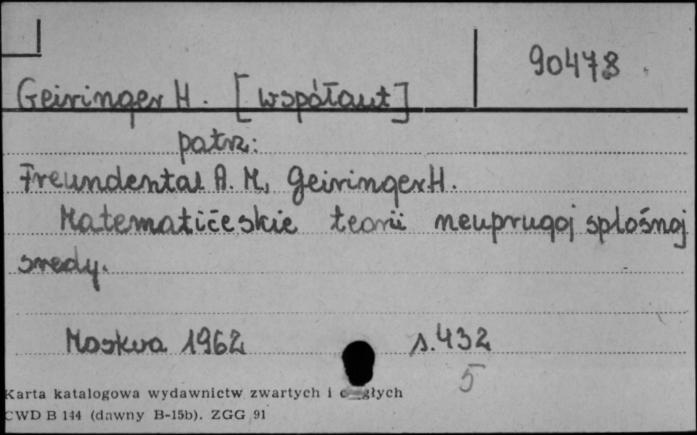 90478
Geiringer H. [współaut]
patrz:
Freundental A. M, Geiringer H.
Matematičeskie teorii neuprugoj splošnoj
sredy.
Moskwa 1962 s. 432
5
Karta katalogowa wydawnictw zwartych i
CWD B 144 (dawny B-15b). ZGG 91